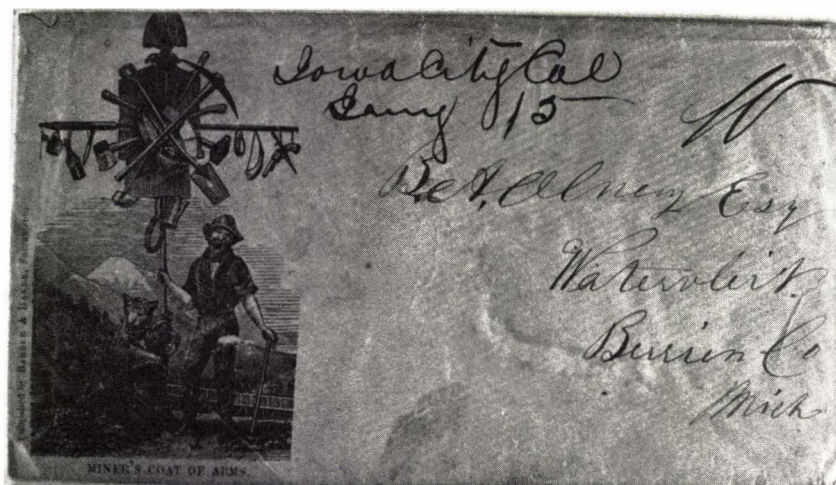 Iowa City Cal
Jany 15
10
B. A. Olney Esq
Watervliet
Berrien Co
Mich
Published by Barber & Baker,
MINER'S COAT OF ARMS.